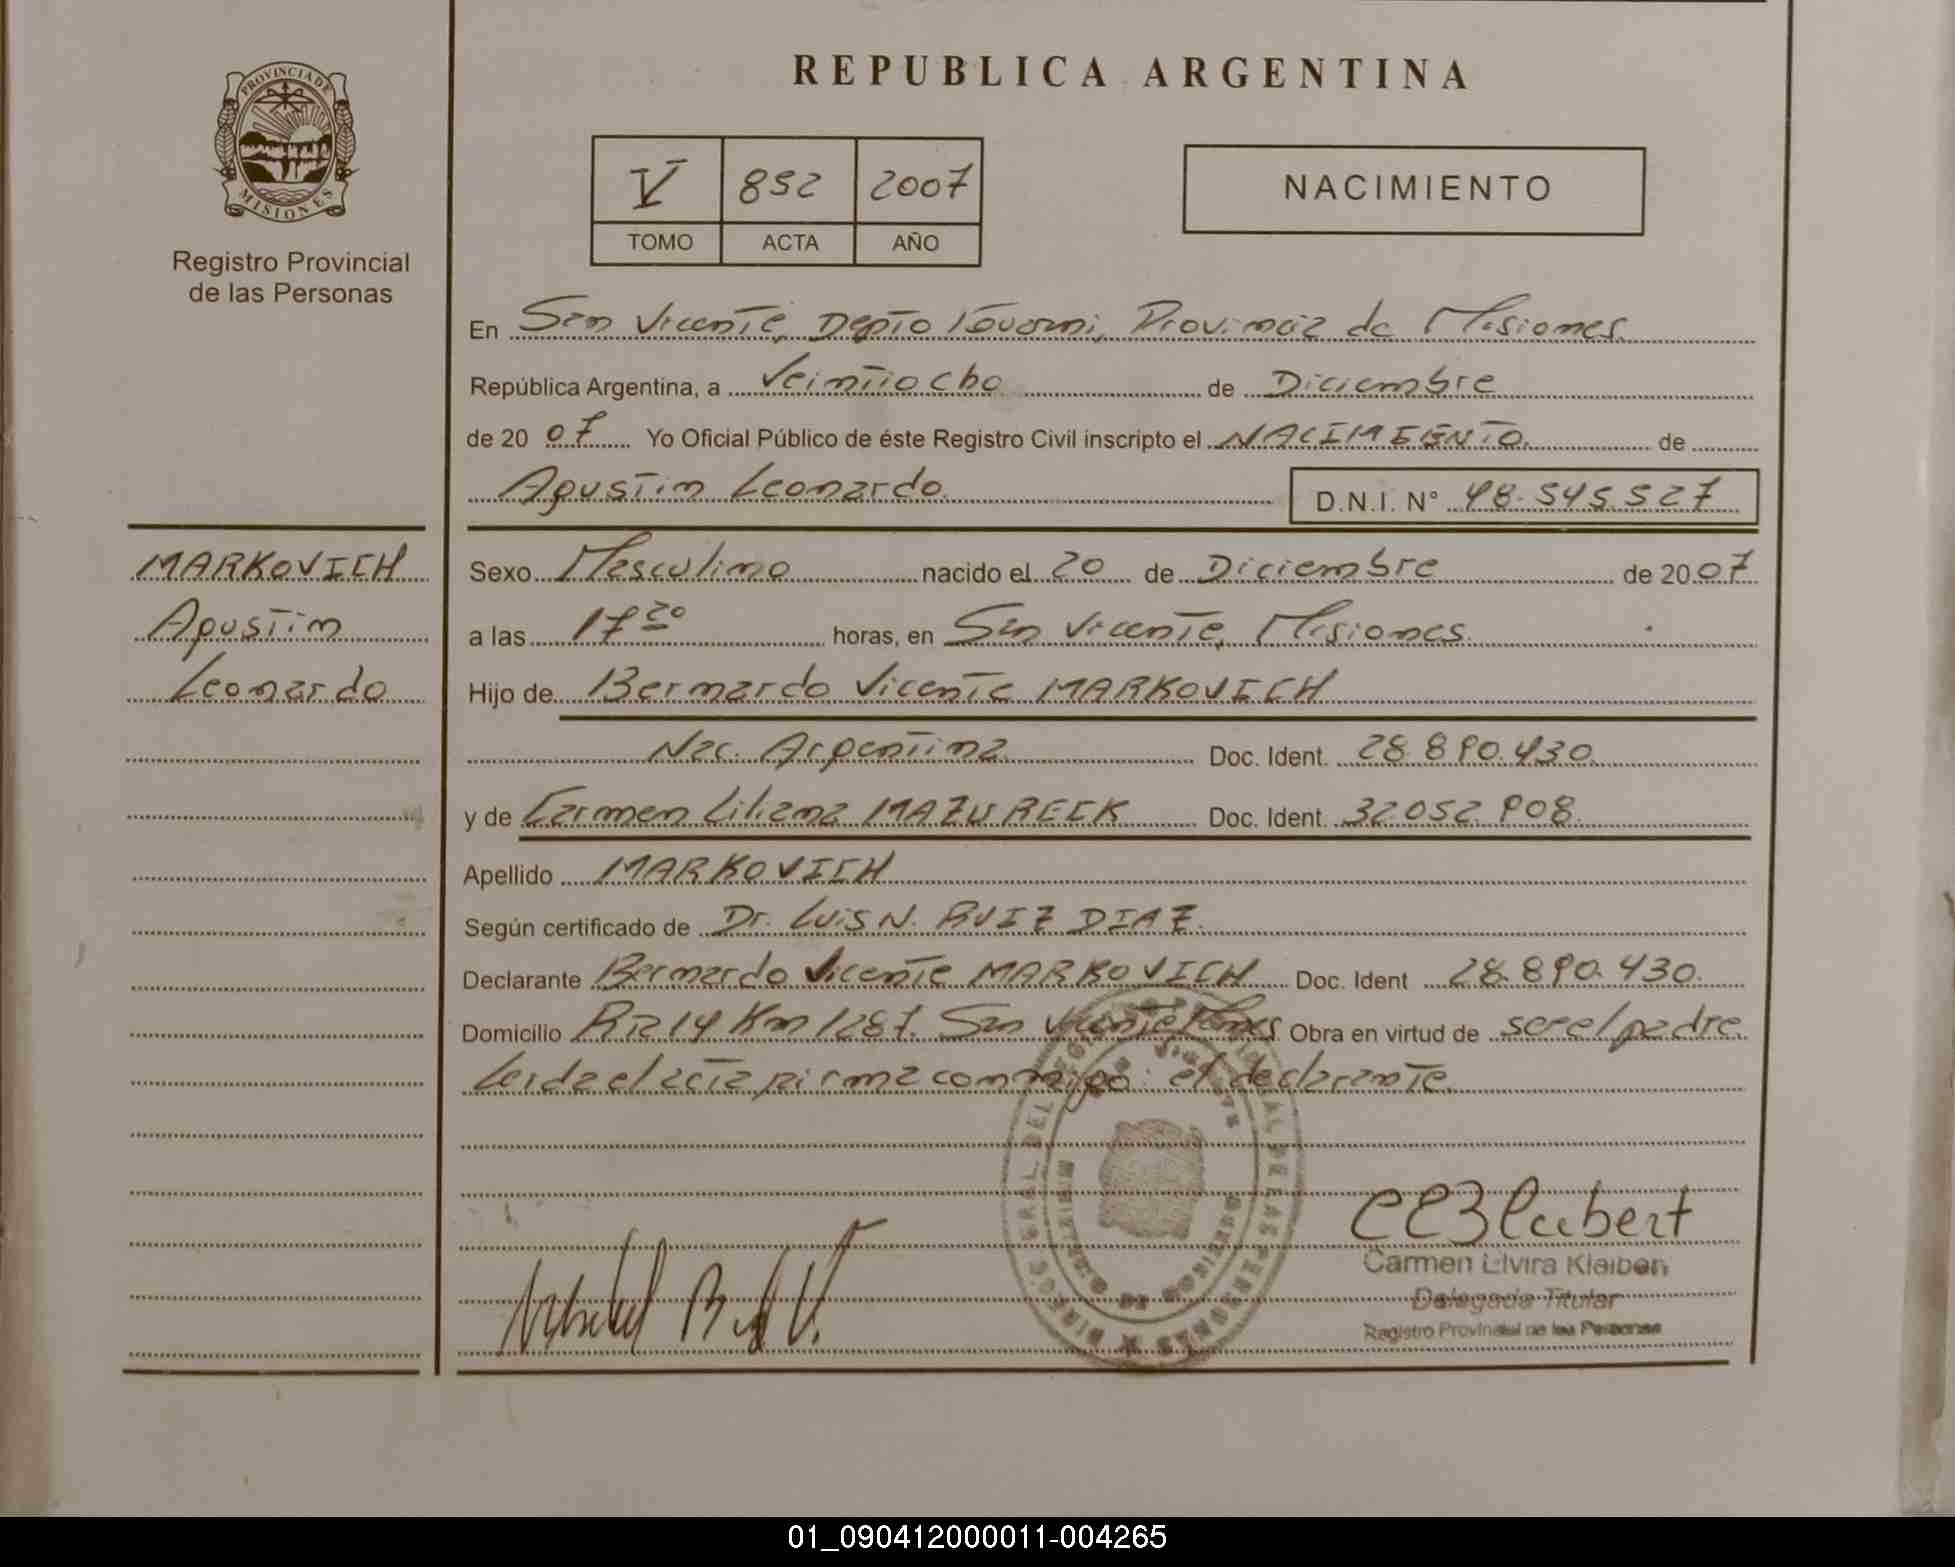 PROVINCIA DE
MISIONES
Registro Provincial
de las Personas
REPUBLICA ARGENTINA
V 852 2007
TOMO ACTA AÑO
NACIMIENTO
En San Vicente, Depto Guarani, Provincia de Misiones
República Argentina, a Veintiocho de Diciembre
de 20 07 Yo Oficial Público de éste Registro Civil inscripto el NACIMIENTO de
Agustin Leonardo D.N.I. N° 48.545.527
MARKOVICH
Agustin
Leonardo
Sexo Masculino nacido el 20 de Diciembre de 2007
a las 17 20 horas, en San Vicente, Misiones
Hijo de Bernardo Vicente MARKOVICH
Nac. Argentina Doc. Ident. 28.890.430
y de Carmen Liliana MAZURECK Doc. Ident. 32.052.908
Apellido MARKOVICH
Según certificado de Dr. Luis N. RUIZ DIAZ
Declarante Bernardo Vicente MARKOVICH Doc. Ident 28.890.430
Domicilio Km 1287. San Vicente Obra en virtud de ser el padre
Leida el acta firma conmigo: el declarante
Carmen Elvira Kleiben
Delegada Titular
Registro Provincial de las Personas
01_090412000011-004265